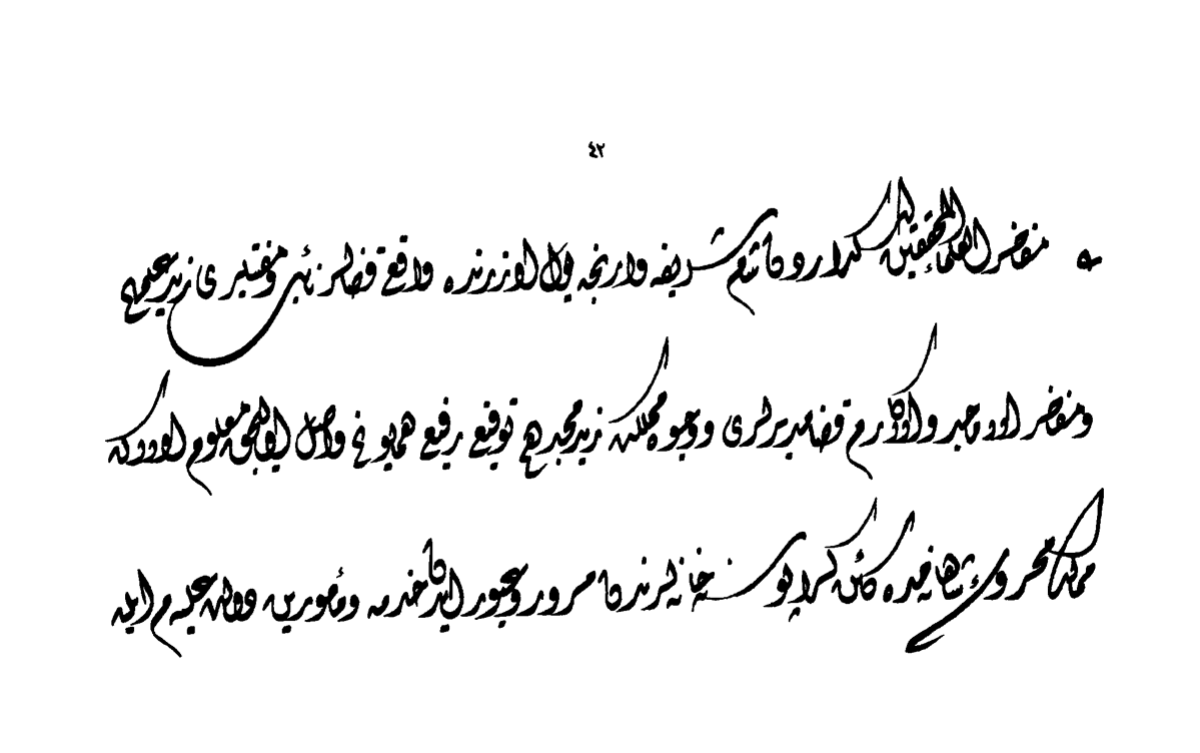 ٤٢
مفاخر العلماء المحققين اسكداردن شام شريفه وارنجه يول اوزرنده واقع قضالر نائب و مفتيلرى زيد علمهم
ومفاخر الاماجد والاكارم قضا مديرلرى ووجوه مملكت زيد مجدهم توقيع رفيع همايونم واصل اوليجق معلوم اولا كه
ممالك محروسه شاهانه مده كائن كرا پوسته خانه لرندن مرور وعبور ايدن خدمه ومأمورين دولت عليه م ايله